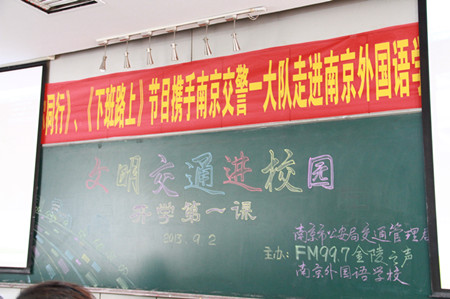 同行》、《下班路上》节目携手南京交警一大队走进南京外国语学
文明交通进校园
开学第一课
2013.9.2
南京市公安局交通管理局
主办：FM99.7金陵之声
南京外国语学校